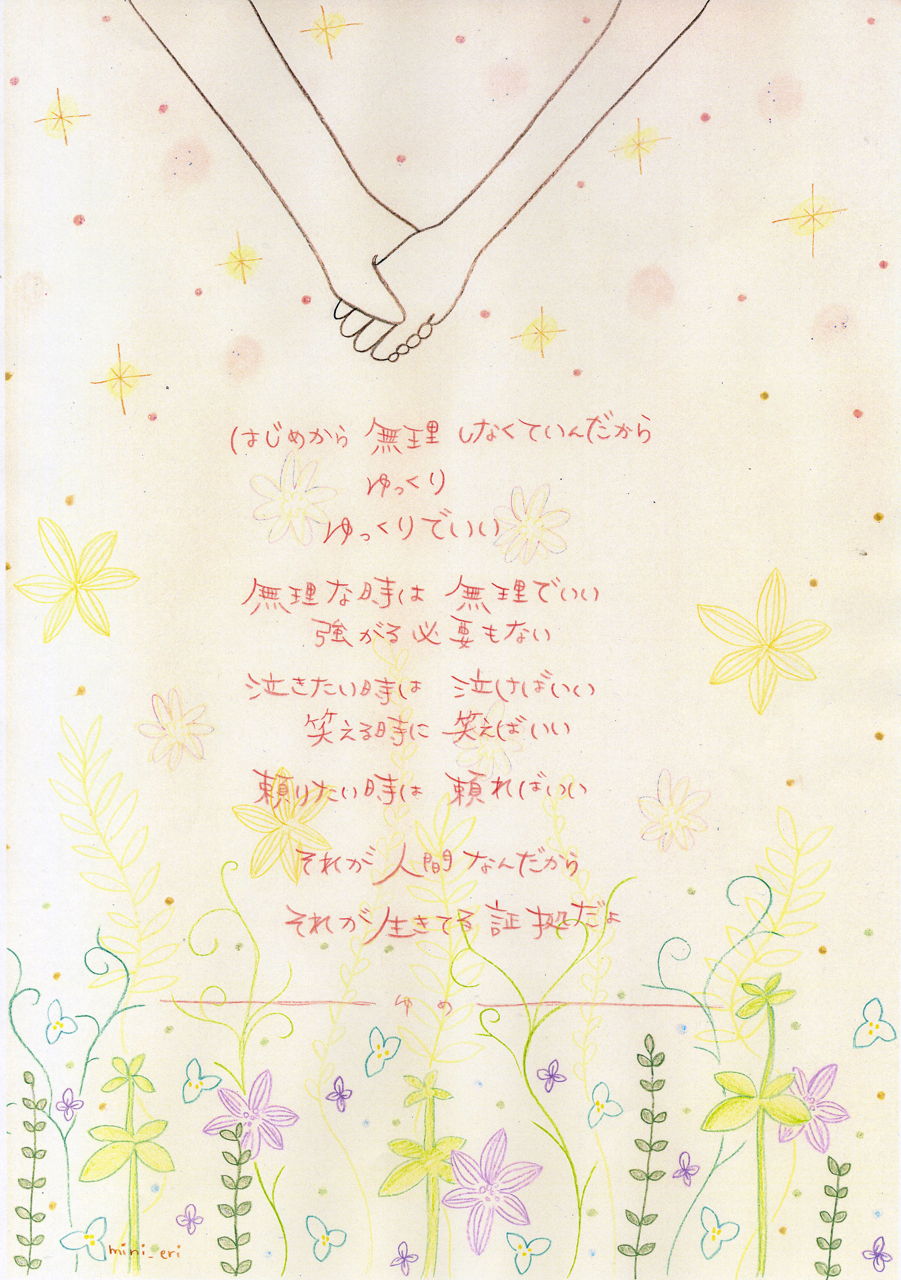 はじめから 無理 しなくていんだから
ゆっくり
ゆっくりでいい
無理な時は 無理でいい
強がる必要もない
泣きたい時は 泣けばいい
笑える時に 笑えばいい
頼りたい時は 頼ればいい
それが 人間 なんだから
それが生きてる 証拠だよ
ゆめ
mini_eri